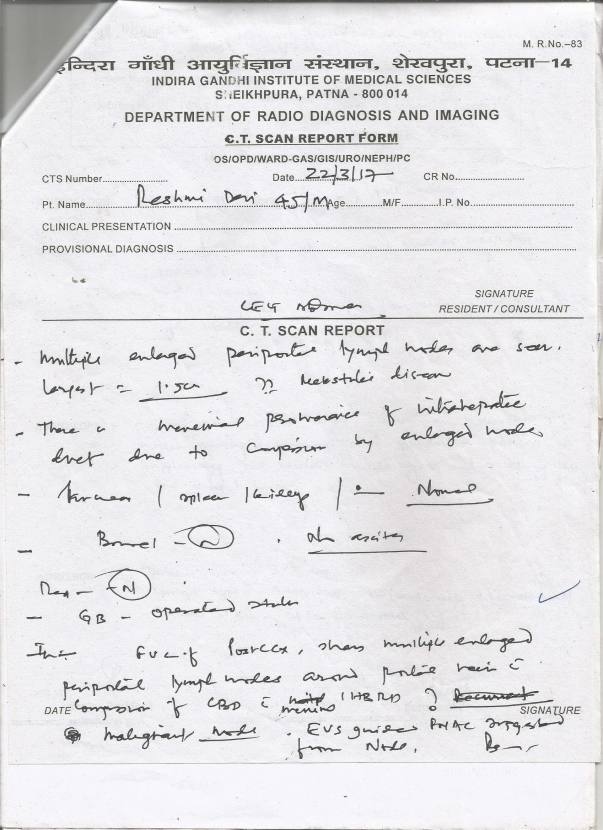 M. R.No.–83
इन्दिरा गाँधी आयुर्विज्ञान संस्थान, शेखपुरा, पटना–14
INDIRA GANDHI INSTITUTE OF MEDICAL SCIENCES
SHEIKHPURA, PATNA - 800 014
DEPARTMENT OF RADIO DIAGNOSIS AND IMAGING
C.T. SCAN REPORT FORM
OS/OPD/WARD-GAS/GIS/URO/NEPH/PC
CTS Number Date 22/3/17 CR No
Pt. Name Reshmi Devi 45/M Age M/F I.P. No.
CLINICAL PRESENTATION
PROVISIONAL DIAGNOSIS
SIGNATURE
RESIDENT / CONSULTANT
C. T. SCAN REPORT
- Multiple enlarged periportal lymph nodes are seen.
largest = 1.5cm ?? Metastatic disease
- There is prominence of intrahepatic
duct due to compression by enlarged nodes
- Pancreas / spleen / kidneys / Normal
- Bowel - N . No ascites
- N
- GB - operated status
FUC of Post CCx, shows multiple enlarged
periportal lymph nodes around portal vein c̄
compression of CBD c̄ minimal IHBRD ?
DATE SIGNATURE
malignant node . EUS guided FNAC suggested
from Node.